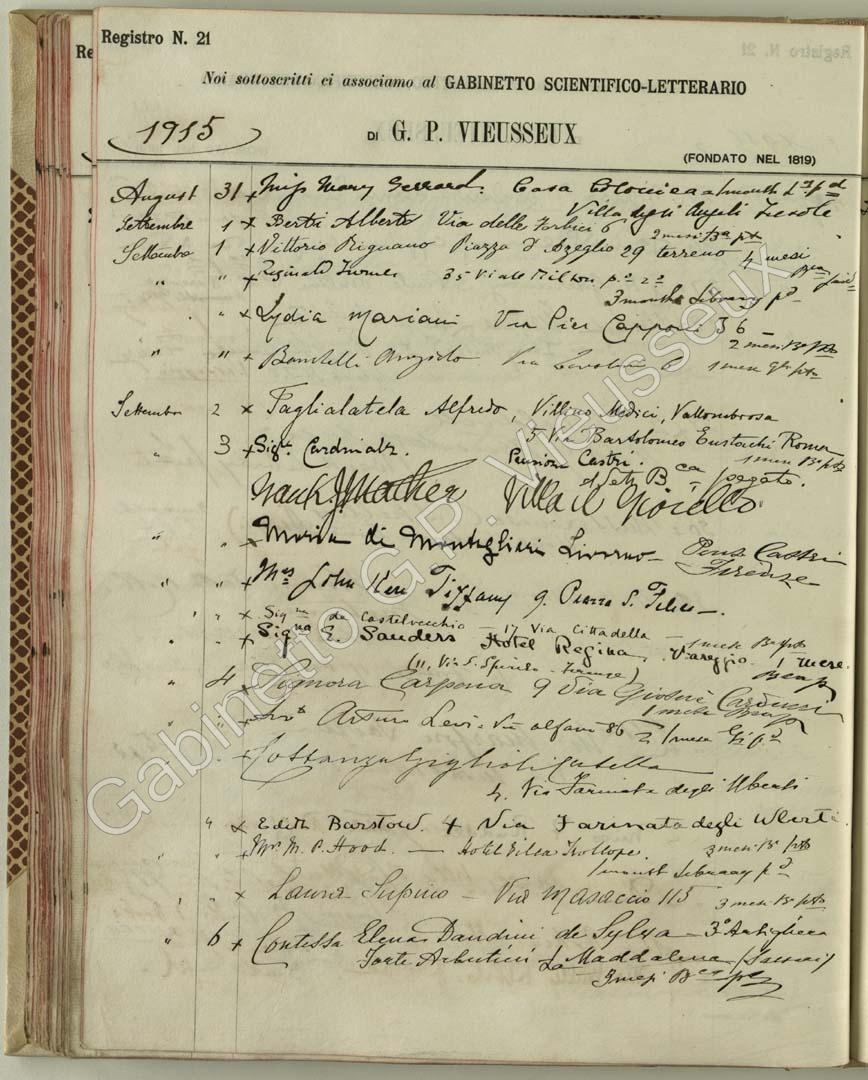 Registro N. 21
Noi sottoscritti ci associamo al GABINETTO SCIENTIFICO-LETTERARIO
1915
DI G. P. VIEUSSEUX
(FONDATO NEL 1819)
August 31 x Miss Mary Gerrard. Casa Colonica 1 month
Villa degli Angeli Fiesole
Settembre 1 x Berti Alberto Via delle Forbici 6
2 mesi Ba pto
Settembre 1 x Vittorio Rignano Piazza d'Azeglio 29 terreno 4 mesi
" " x Reginald Turner 35 Viale Milton po 2o
3 months Library pd
" x Lydia Mariani Via Pier Capponi 36 —
2 mesi Ba pto
" " x Angiolo Via 6 1 mese pto
Settembre 2 x Taglialatela Alfredo, Villino Medici, Vallombrosa
5 Via Bartolomeo Eustachi Roma
1 mese Ba pto
" 3 x Sigra Cardinali. Pensione Castri.
Frank J Mather Villa il Gioiello
" " x Maria di Montegliari Livorno — Pens Castri
Firenze
" " x Mrs John Kerr Tiffany 9. Piazza S. Felice —.
" " x Sigra de Castelvecchio — 17 Via Cittadella — 1 mese Ba pto
" " x Signa E. Sanders Hotel Regina, Viareggio. 1 mese
(11, Via S. Spirito — Firenze)
" 4 x Signora Carpena 9 Via Giosuè Carducci
1 mese
" " x Arturo Levi — Via Alfani 86 1 mese
" Costanza Giglioli Casella
4. Via Farinata degli Uberti
" x Edith Barstow. 4 Via Farinata degli Uberti.
" " x Mrs M. P. Hood. — Hotel Villa Trollope. 3 mesi Ba pto
1 month Library pd
" " x Laura Supino — Via Masaccio 115 3 mesi Ba pto
" 6 x Contessa Elena Dandini de Sylva — 3o Artiglieria
Forte La Maddalena (Sassari)
3 mesi
Gabinetto G. P. Vieusseux